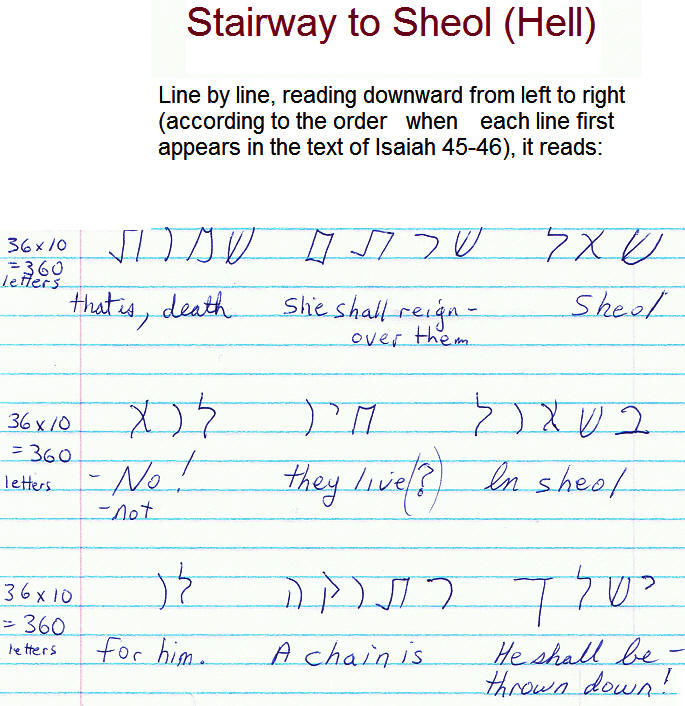 Stairway to Sheol (Hell)
Line by line, reading downward from left to right
(according to the order when each line first
appears in the text of Isaiah 45-46), it reads:
שאל שרתם שמות
36x10
=360
letters
that is, death She shall reign- Sheol
over them
בשאול חיו לוא
36x10
=360
letters
- No! they live(?) In sheol
- not
ישלך רתוקה לו
36x10
=360
letters
for him. A chain is He shall be-
thrown down!